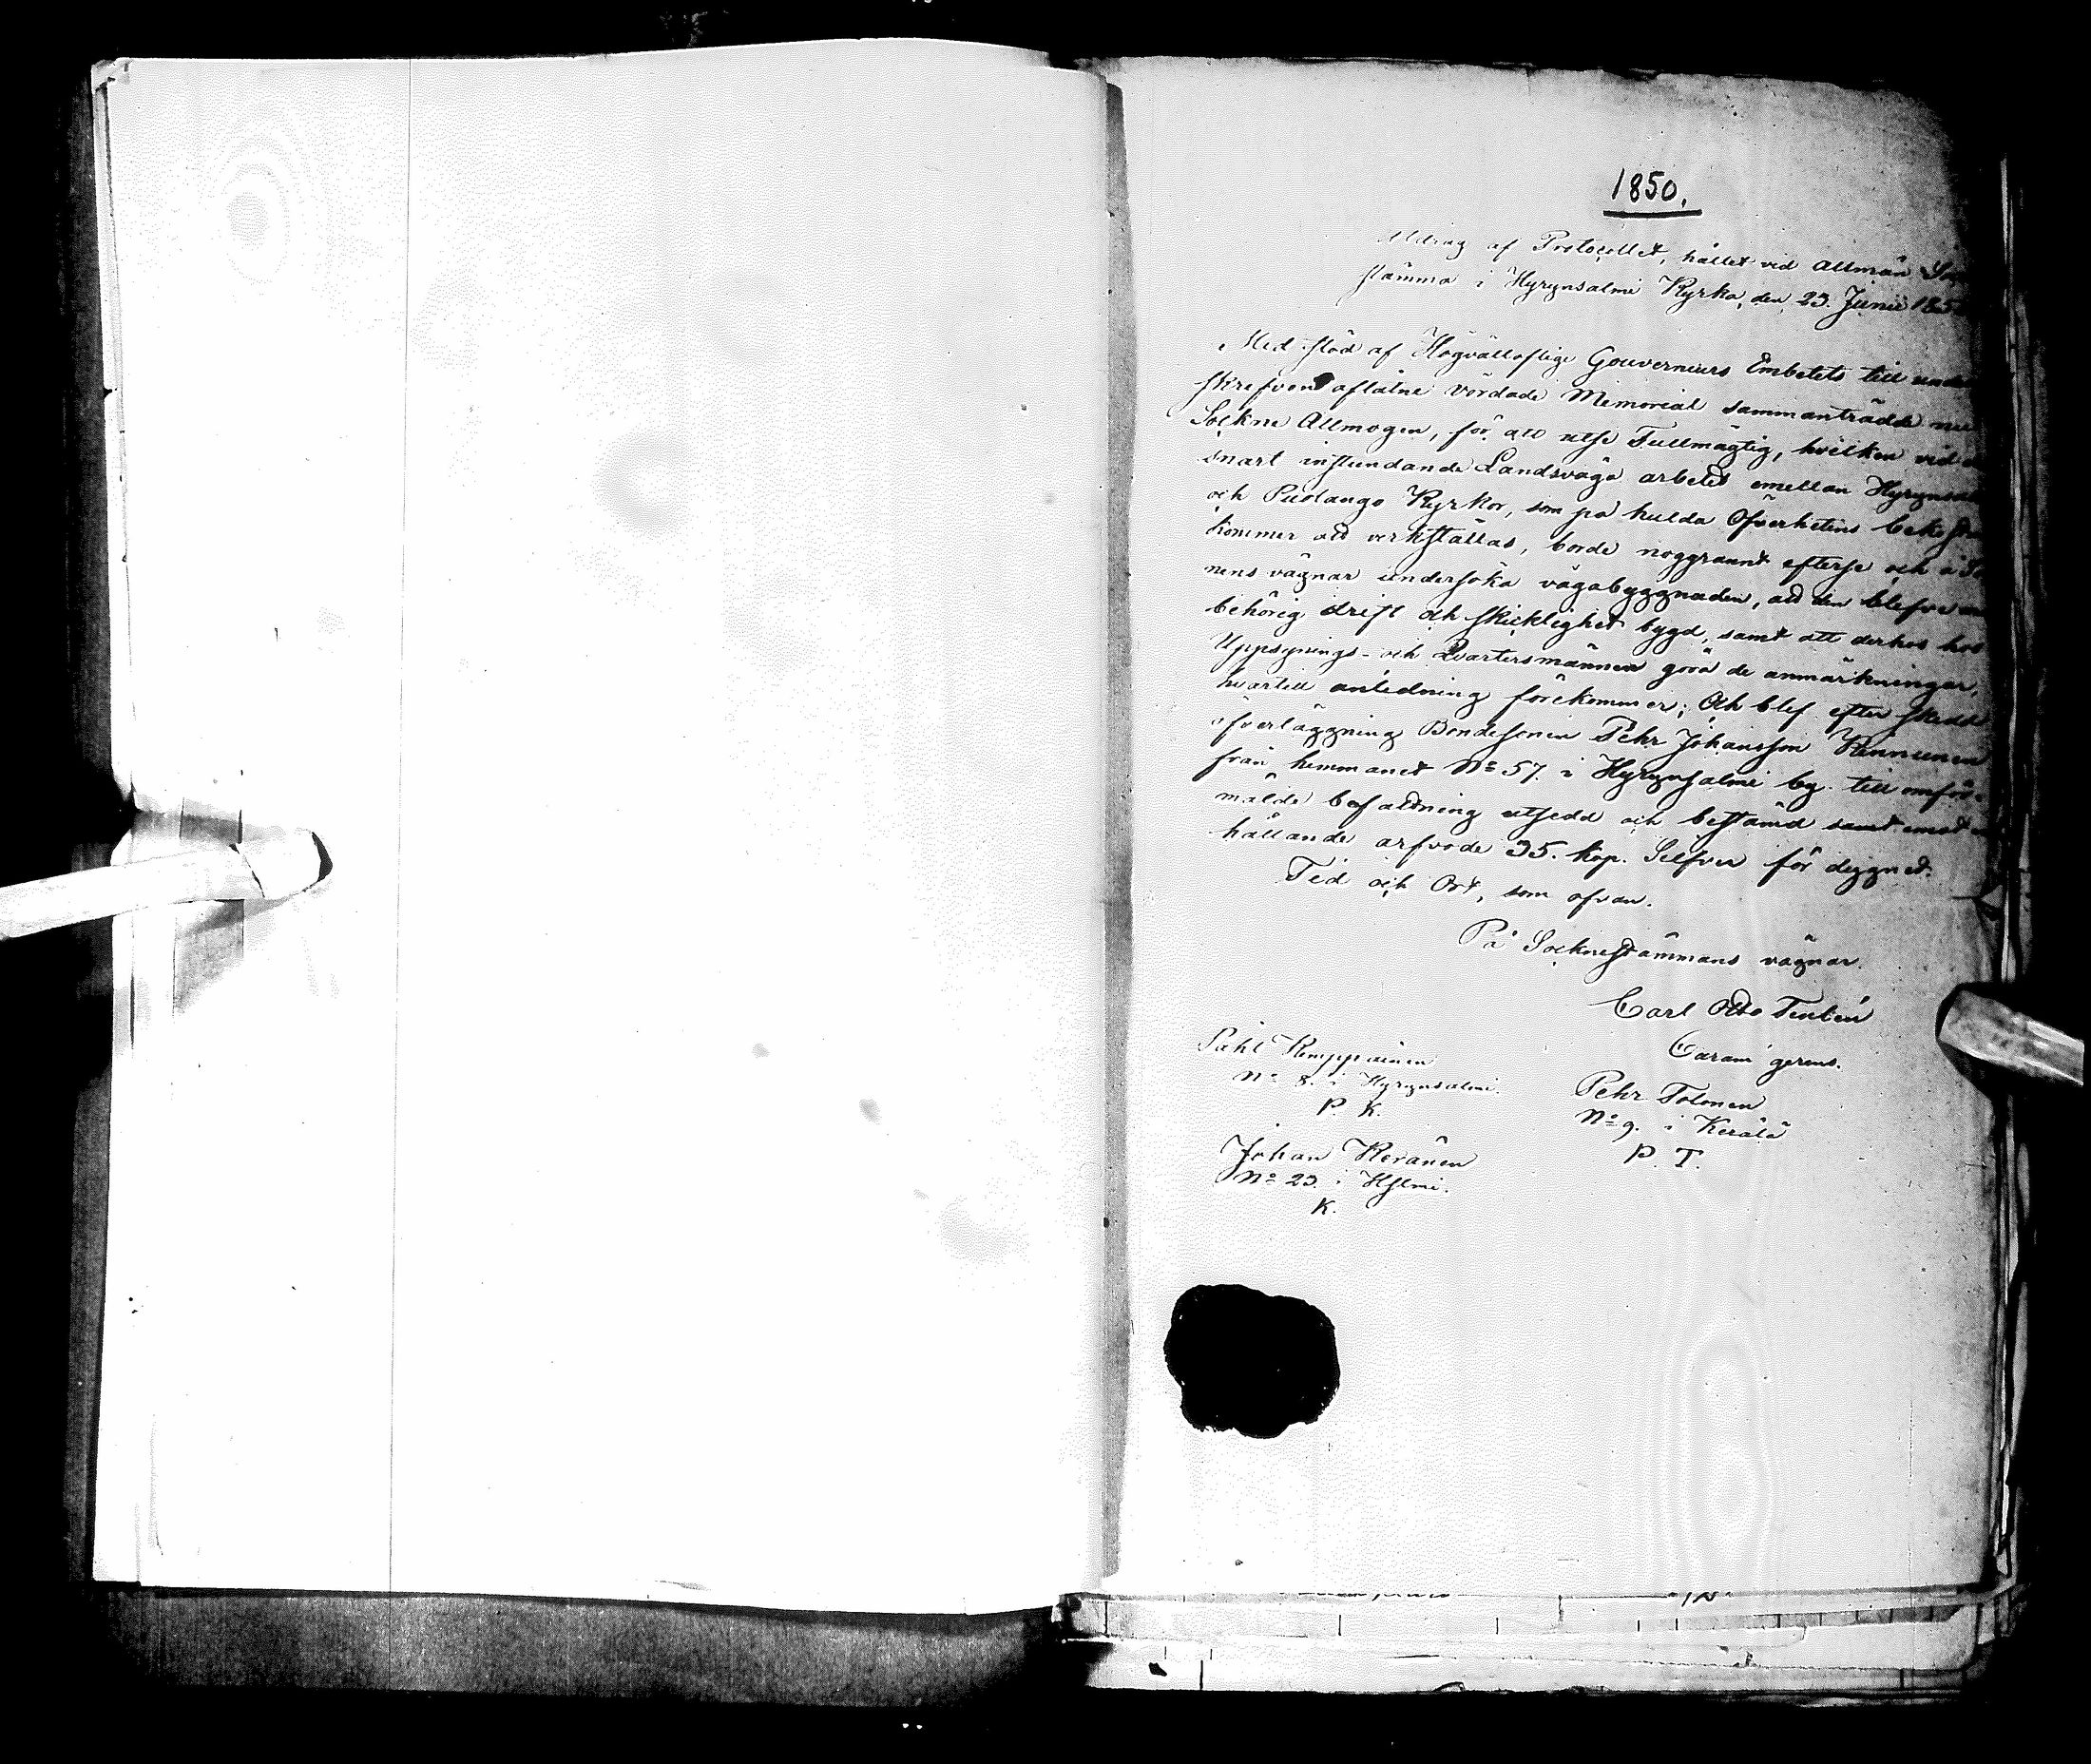 1850.
Utdrag af Protocollet, hållet vid Allmän
stämma i Hyrynsalmi Kyrka, den 23. Junii 185
Med stöd af Högvälloflige Gouverneurs Embetets till
skrefven aflåtne vördade Memorial sammanträdde nu
Sockne Allmogen, för att utse Fullmägtig, hvilken vid
snart instundande Landsvägs arbetet emellan
och Puolango Kyrkor, som på hulda Öfverhetens
kommer att verkställas, borde noggrannt efterse och å
nens vägnar undersöka vägabyggnaden, att den blefve
behörig drift och skicklighet bygd, samt att derhos hos
Uppsynings- och Qvartersmännen göra de anmärkningar,
hvartill anledning förekommer; Och blef efter skedd
öfverläggning Bondesonen Pehr Johansson Kinnunen
från hemmanet No 57. i Hyrynsalmi by till omför-
mälde befattning utsedd och bestämd samt emot
hållande arfvode 35. kop. Silfver för dygnet.
Tid och Ort, som ofvan.
På Socknestämmans vägnar.
Carl Otto
gerens.
Påhl Kemppainen
No 8. i Hyrynsalmi.
P. K.
Pehr Tolonen
No 9. i Kerälä
P. T.
Johan Keränen
No 23. i Hslmi.
K.